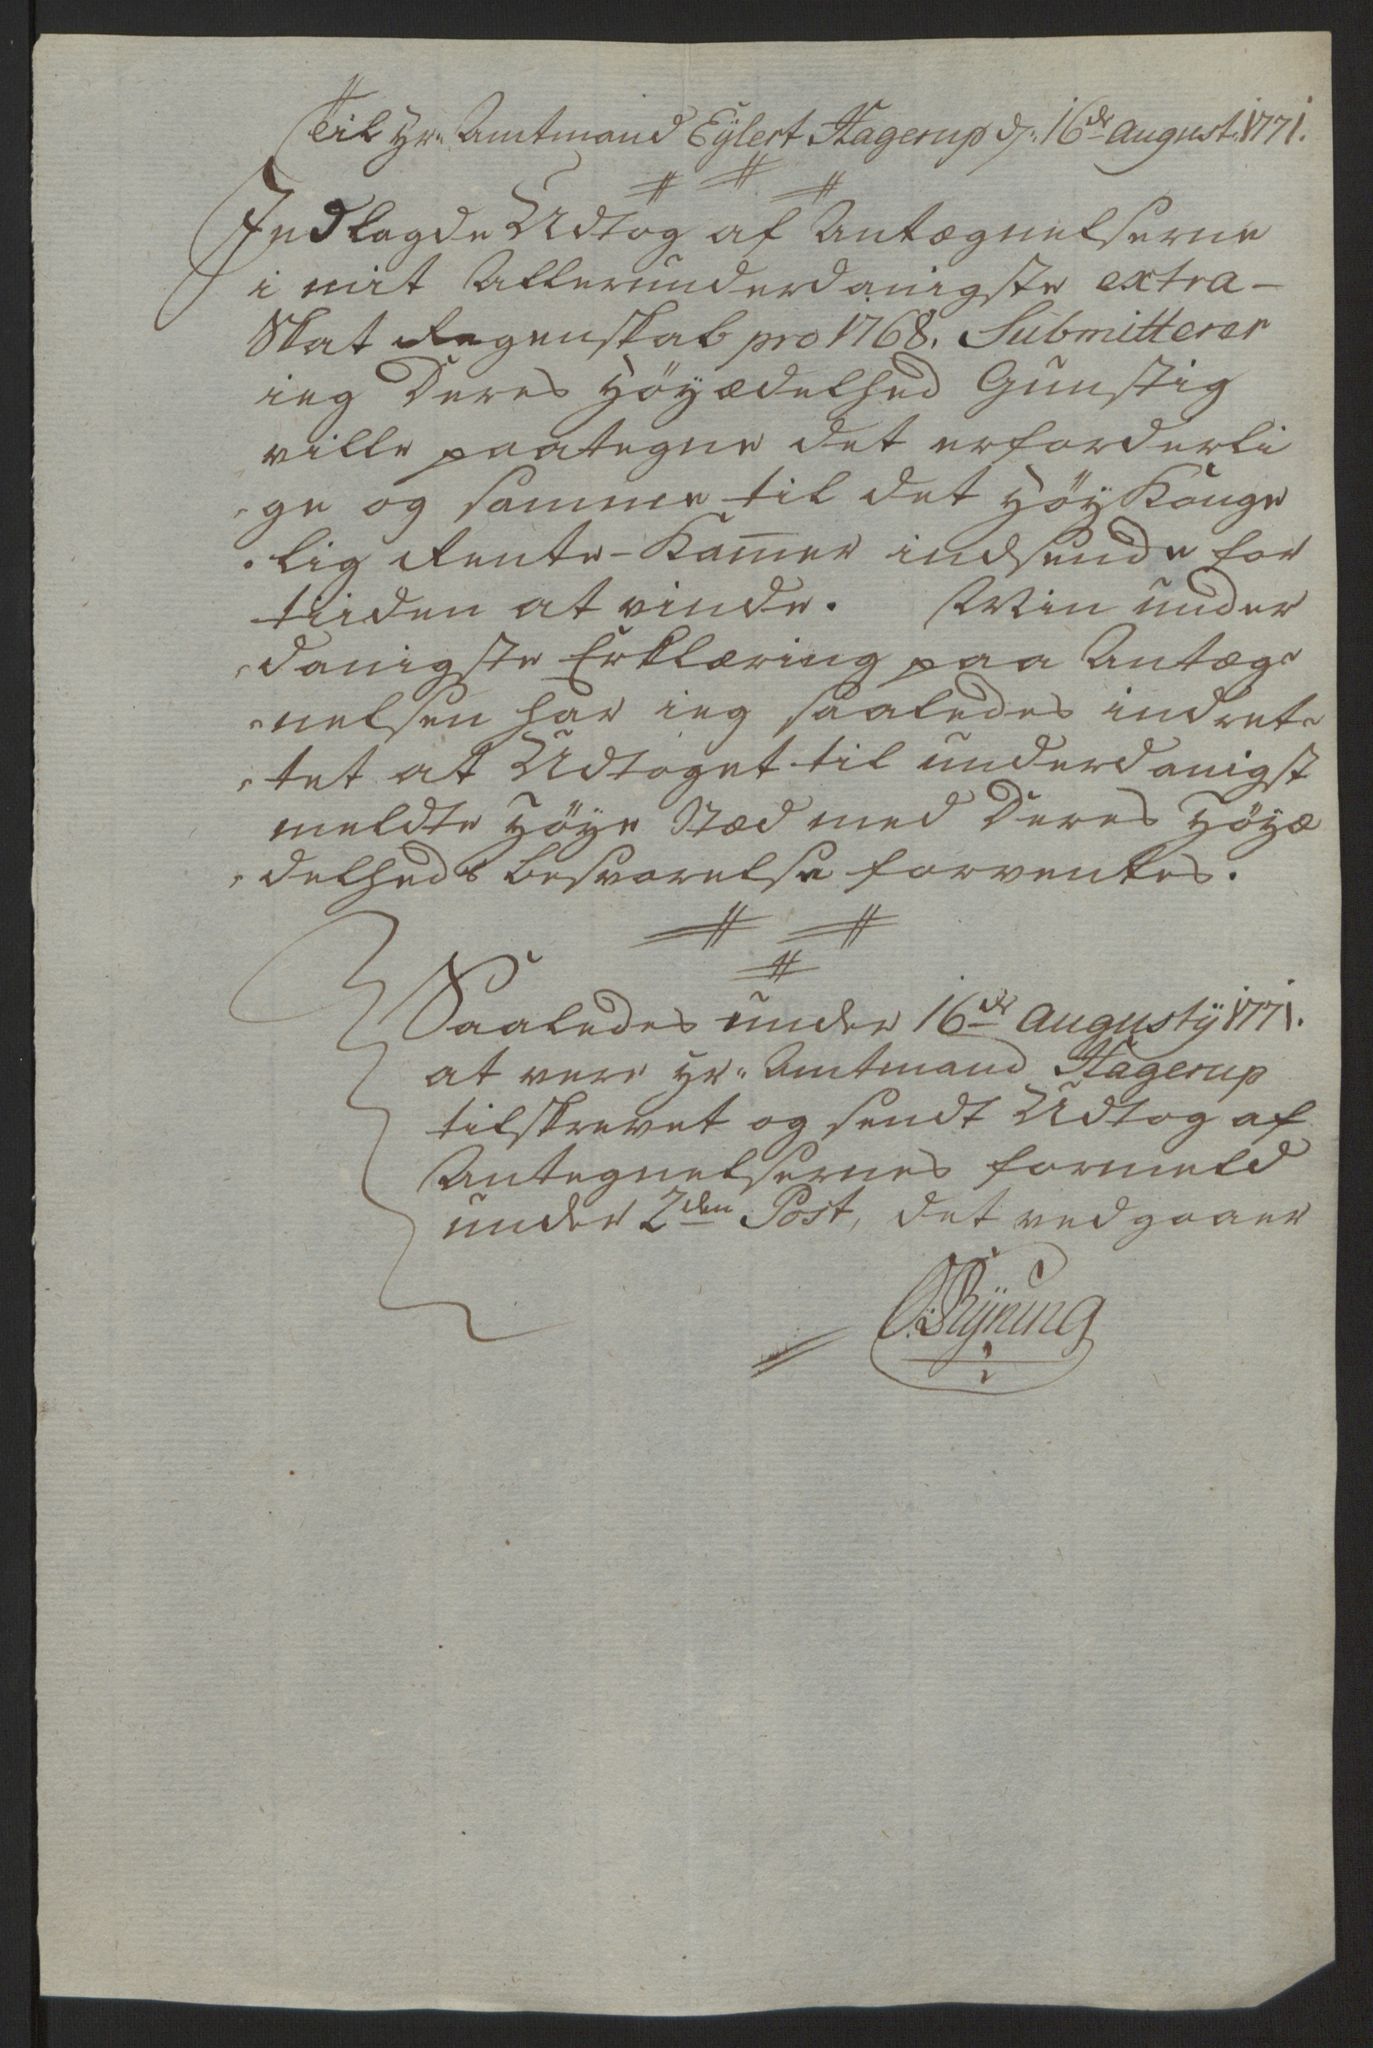 Til Hr: Amtmand Eÿlert Hagerup d: 16de August: 1771.
Indlagde Udtog af Antægnelserne
i mit Allerunderdanigste extra-
Skat Regenskab pro 1768. Submitterer
ieg Deres Höÿædelhed Gunstig
ville paategne det erforderli
ge og samme til det Höÿ Konge
lig Rente-Kam̅er indsende for
tiiden at vinde. Min under
danigste Erklæring paa Antæg
nelsen har ieg saaledes indret
tet at Udtoget til underdanigst
meldte Höÿe Stæd med Deres Höÿæ
delheds besvarelse forventes.
Saaledes under 16de Augustÿ 1771.
at vere Hr: Amtmand Hagerup
tilskrevet og sendt Udtog af
Antegnelsernes formeld
under 2den Post, det vedgaaer
O: Rÿning